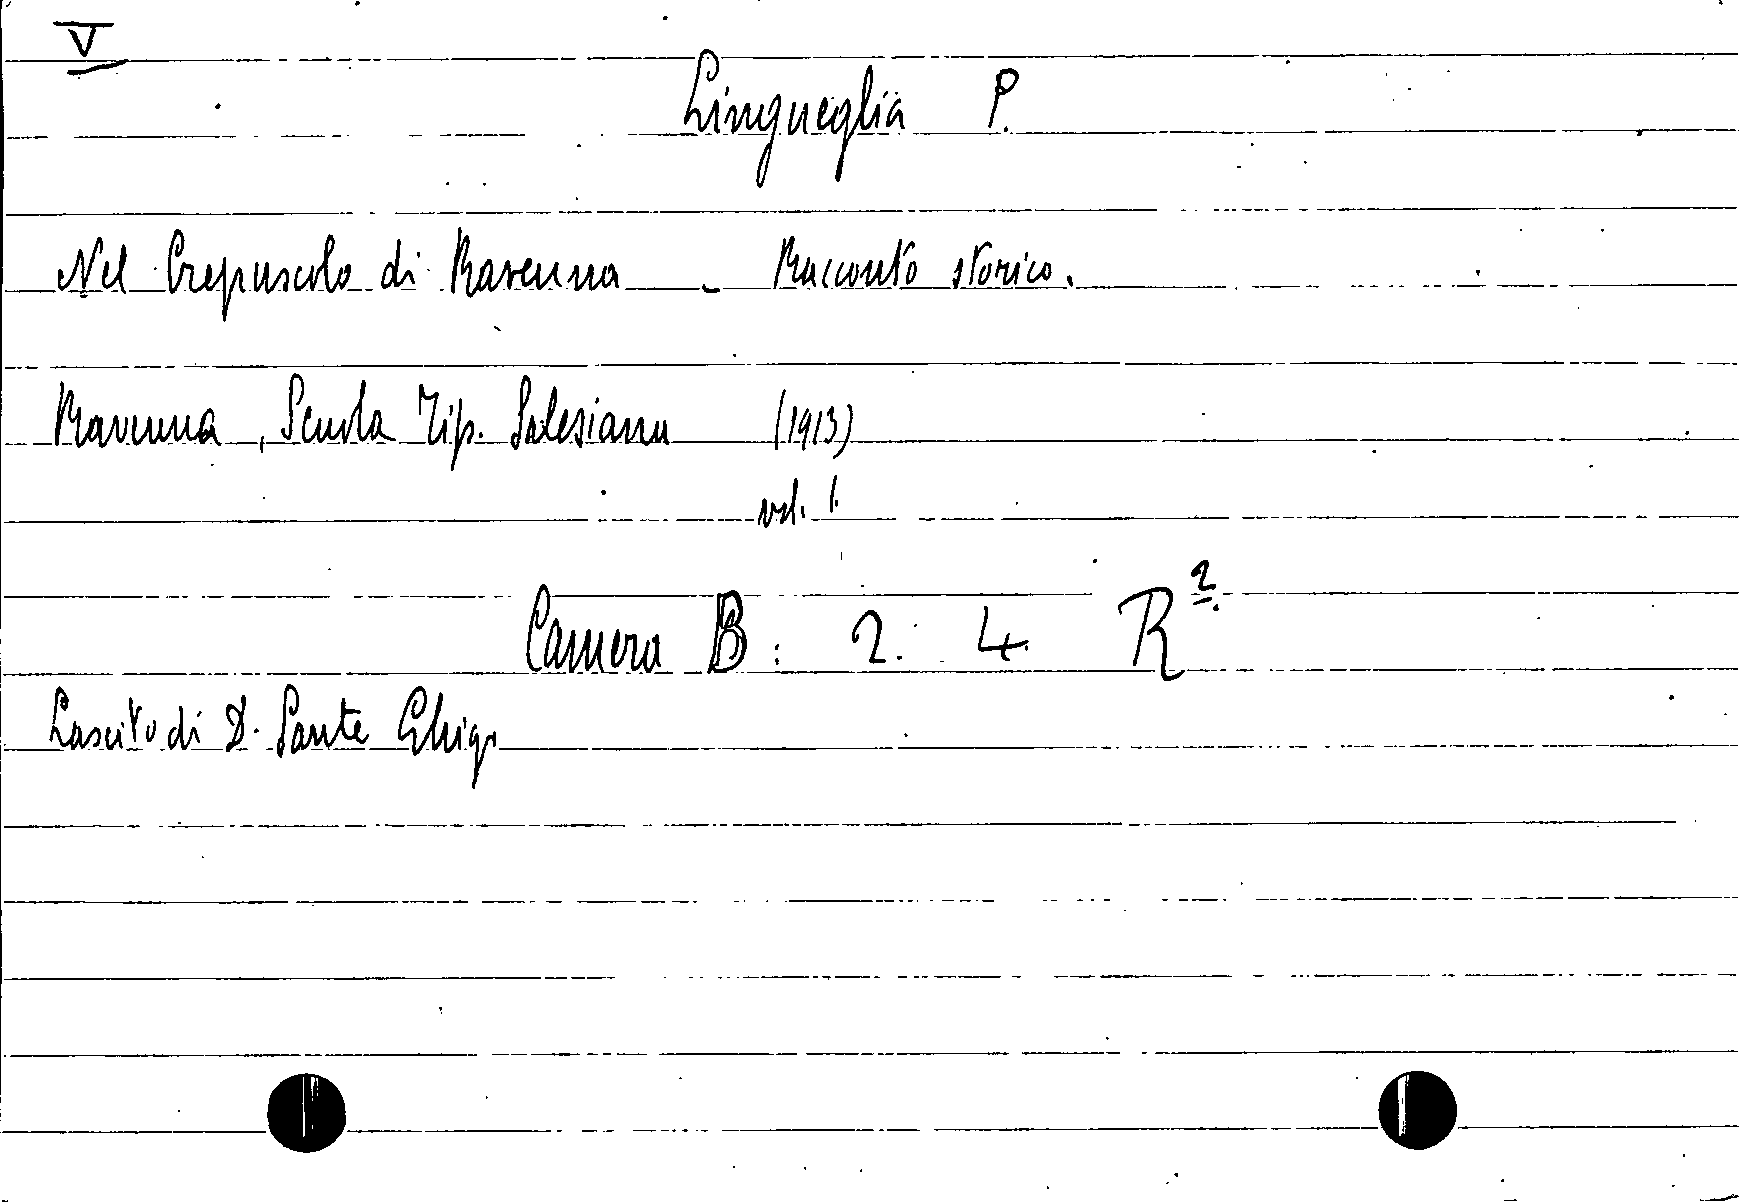 V
Lingueglia P.
Nel Crepuscolo di Ravenna - Racconto storico.
Ravenna, Scuola Tip. Salesiana (1913)
vol. 1.
Camera B: 2. 4. R²
Lascito di D. Sante Ghigi